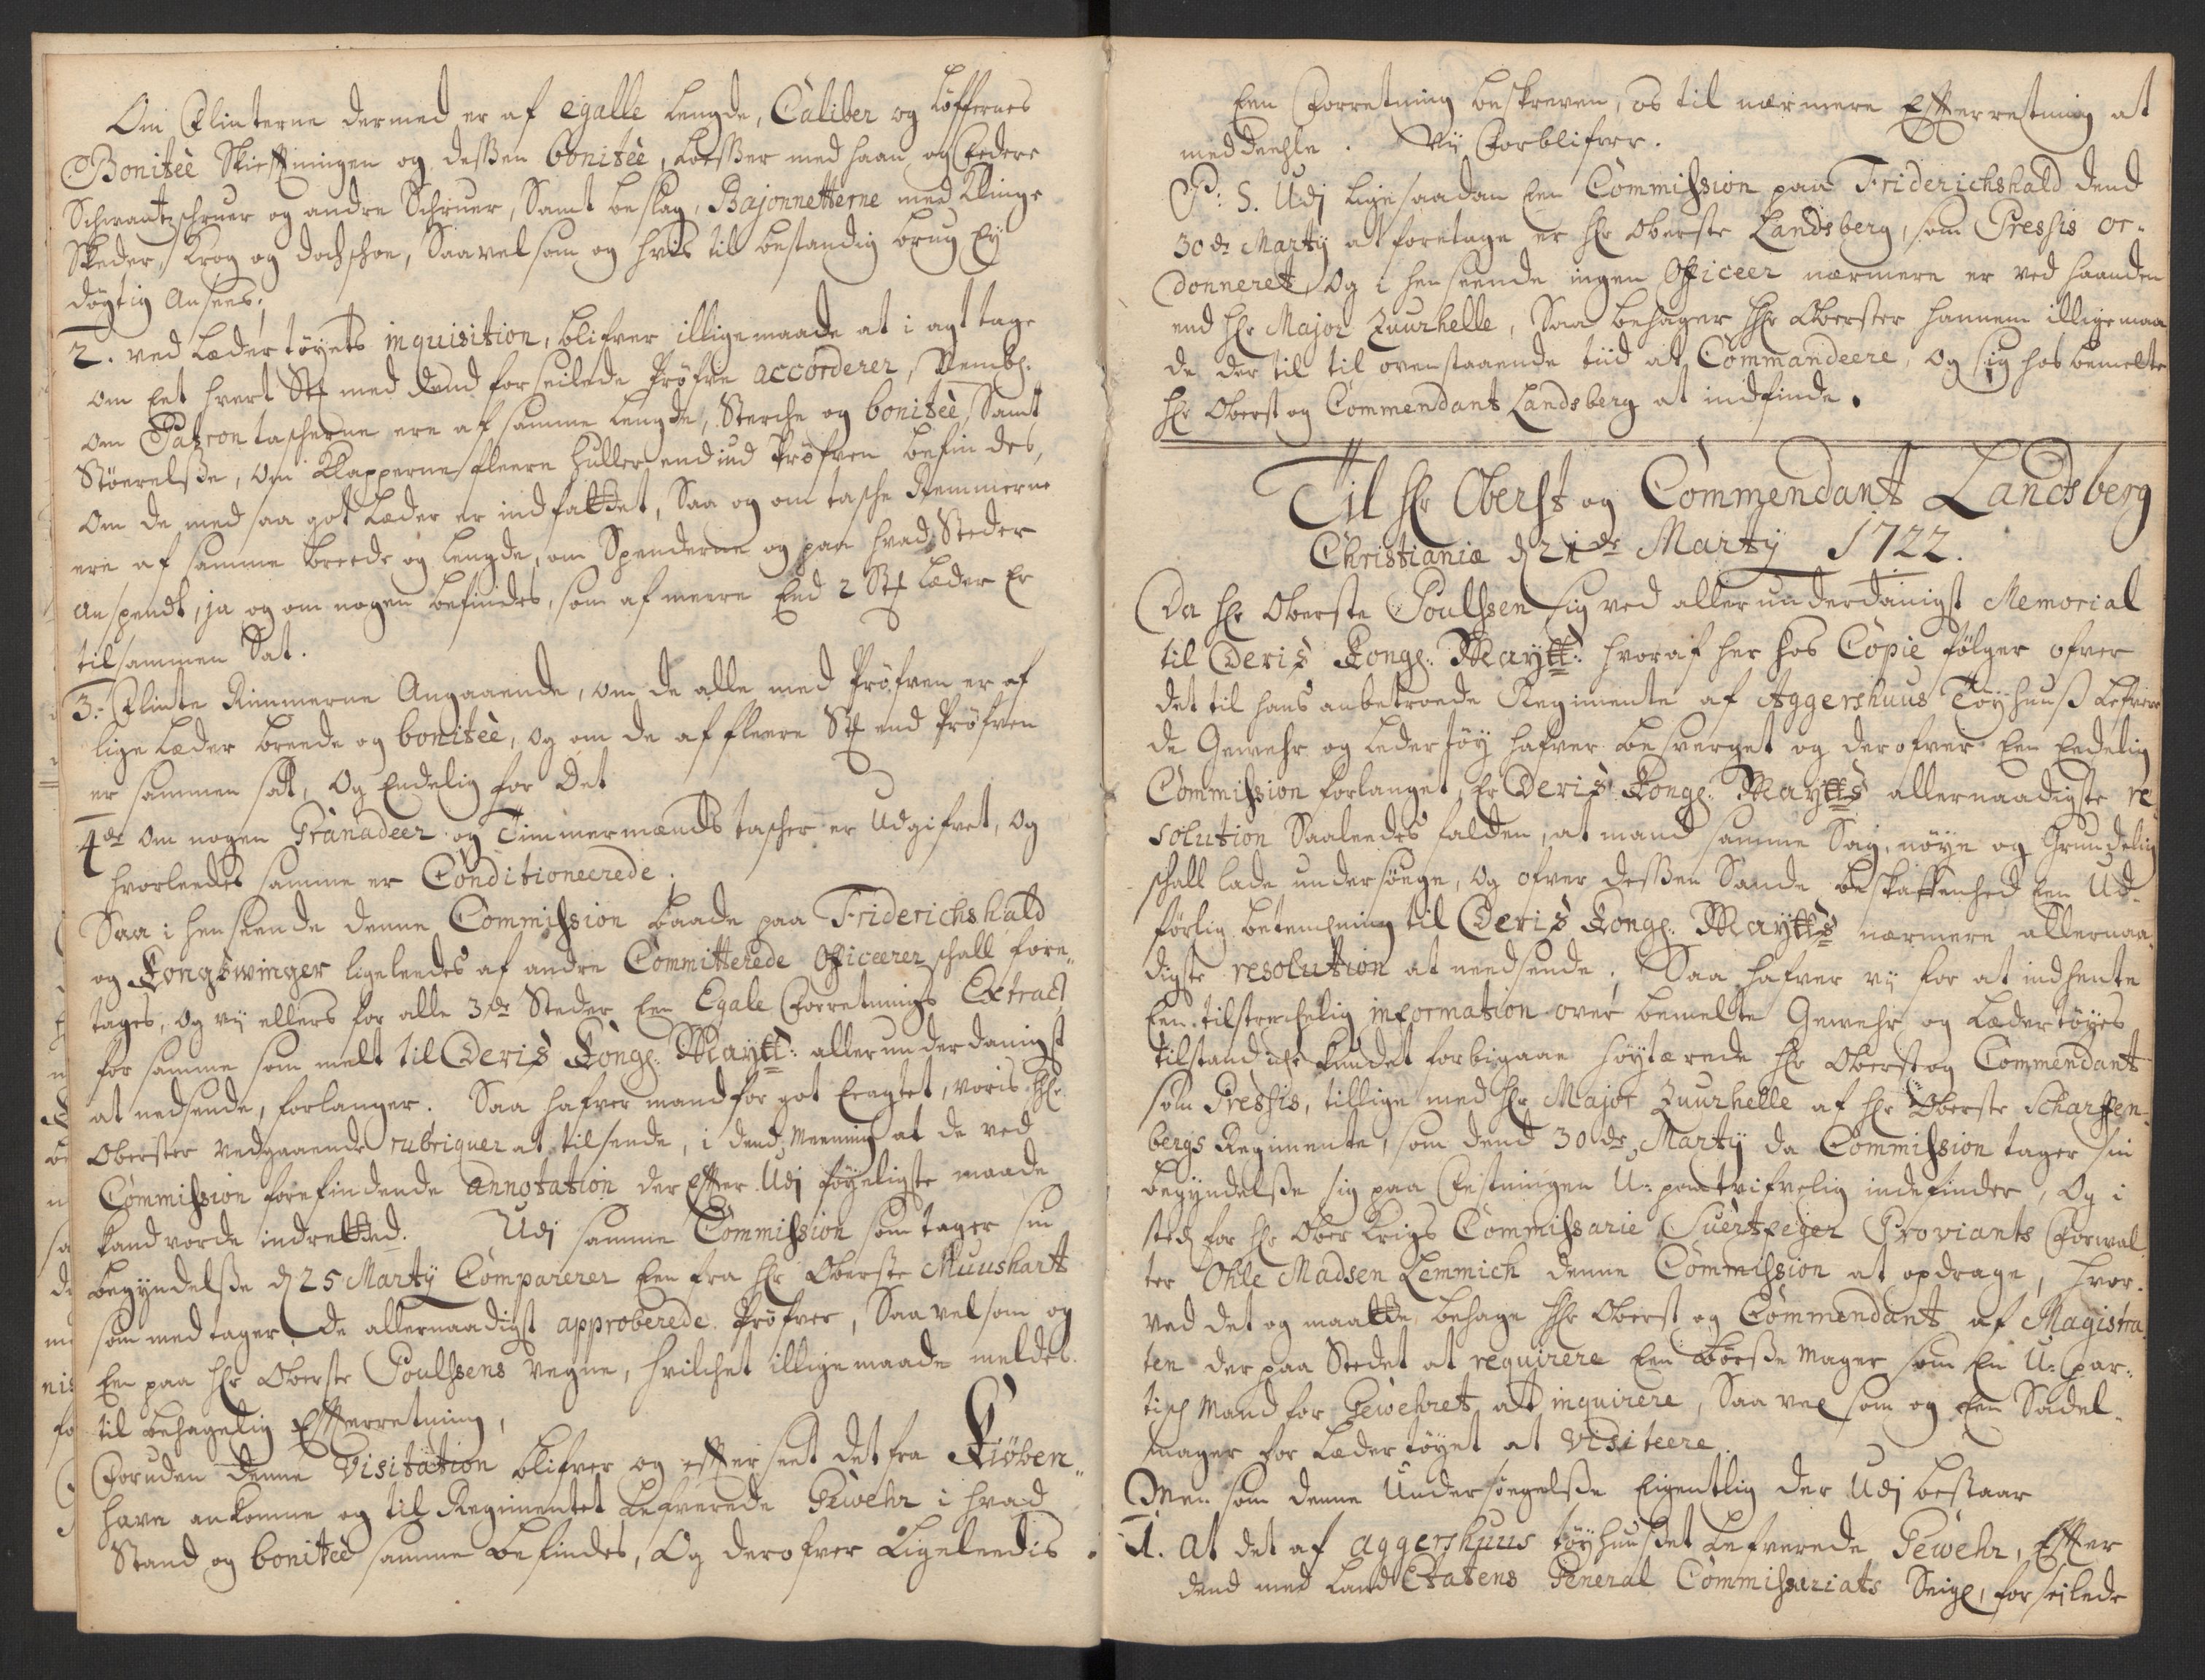 Om Flinterne dermed er af egalle Lengde, Caliber og Løffternes
Bonitéè Skiefftningen og deßen bonitéè, Laaßer med haan og Federe
Schwantzschruer og andre Schruer, Samt beslag, Bajonnetterne med Klinge
Skeder, Krog og dochschoe, Saavelsom og hvis til bestandig brug Ey
døgtig Ansees;
2. ved Lædertøyets inquisition, blifver illigemaade at i agt tage
om Eet hvert St: med dend forseilede Prøfve accorderer, Nembl:
om Patrontascherne ere af samme Lengde, Sterche og bonitéè, Samt
Støerelße, om Klapperne fleere Huller end ved Prøfven befindes,
Om de med saa got Læder er indfattet, Saa og om tasche Remmerne
ere af samme breede og Lengde, om Spenderne og paa hvad Steder
Anspendt, ja og om nogen befindes, som af meere End 2 St: Læder Er
tilsammen Sat.
3. Flinte Rimmerne Angaaende, om de alle med Prøfven er af
lige Læder breede og bonitéè, og om de af fleere St: end Prøfven
er sammen satt, Og Endelig for det
4de Om nogen Granadeer og Timmermands tascher er Udgifvet, og
hvorleedes samme er Conditioneerede;
Saa i henseende denne Commission baade paa Friderichshald
og Kongswinger ligeleedes af andre Committerede Officeerer schall fore„
tages, og vij ellers for alle 3de Steder Een Egale Forretnings Extract
for samme som melt til Deris Kongl: Maytt: allerunderdanigst
at nedsende, forlanger. Saa hafver mand for got Eragtet, voris Hr:
Oberster vedgaaende rubriquer at tilsende, i dend Meening at de ved
Commission forefindende annotation der Effter Udj føyeligste maade
kand vorde indrettet. Udj samme Commission som tager sin
begyndelße d 25 Martij Comparerer Een fra Hr Oberste Muushart
som medtager de allernaadigst approberede Prøfver, Saavelsom og
Een paa Hr Oberste Poulssens vegne, hvilchet illigemaade meldes
til behagelig Effterretning,
Foruden denne Visitation blifver og effterseet det fra Kiøben„
havn ankomne og til Regimentet Lefverede Gewehr i hvad
Stand og bonitéè samme befindes, Og derofver Ligeleedis
Een Forretning beskreven, os til nærmere Effterretning at
meddeehle. Vij Forblifver.
P: S. Udj ligesaadan Een Commission paa Friderichshald dend
30de Martij at foretage er Hr Oberste Landsberg, som Pressis or„
donneret, Og i henseende ingen Officeer nærmere er ved haanden
end Hr Major Zuurhelle, Saa behager Hr Oberster hannem illigemaa
de der til til ovenstaaende tiid at Commandeere, og sig hos bemelte
Hr Oberst og Commendant Landsberg at indfinde.
Til Hr Oberst og Commendant Landsberg
Christiania d 21de Martij 1722.
Da Hr Oberste Poulssen sig ved allerunderdanigst Memorial
til Deris Kongl: Maytt: hvoraf her hos Copie følger ofver
det til hans anbetroede Regimente af Aggershuus Tøyhuuß Lefvere
de Gewehr og Ledertøy hafver besverget og derofver Een Eendelig
Commission forlanget, Er Deris Kongl: Maytts allernaadigste re
solution Saaleedes falden, at mand samme Sag, nøye og Grundelig
schall lade undersøge, og ofver deßen Sande beskaffenhed Een Ud„
førlig betenchning til Deris Kongl: Maytts nærmere allernaa
digste resolution at needsende; Saa hafver vij for at indhente
Een tilstrechelig information over bemelte Gewehr og Lædertøyes
tilstand iche kundet forbigaae høytærede Hr Oberst og Commendant
som Pressis, tillige med Hr Major Zuurhelle af Hr Oberste Scharffen„
bergs Regimente, som dend 30de Martij da Commission tager sin
begyndelße sig paa Festningen U: paatvifvelig indfinder, Og i
sted for Hr Ober Krigs Commissarie Suertfeger Proviants Forwal
ter Ohle Madsen Lemmich denne Commission at opdrage, hvor„
ved det og maatte behage Hr Oberst og Commendant af Magistra
ten der paa Stedet at requirere Een Børße Mager som Een U: par„
tisch Mand for Gewehret at inquirere, Saa vel som og Een Sadel„
mager for Lædertøyet at visiteere.
Men som denne Undersøegelße Eigentlig der Udj bestaar
1. At det af Aggershuus tøyhuußet Lefverede Gewehr, Effter
dend med Land Etatens General Commissariats Seigl, forseilede